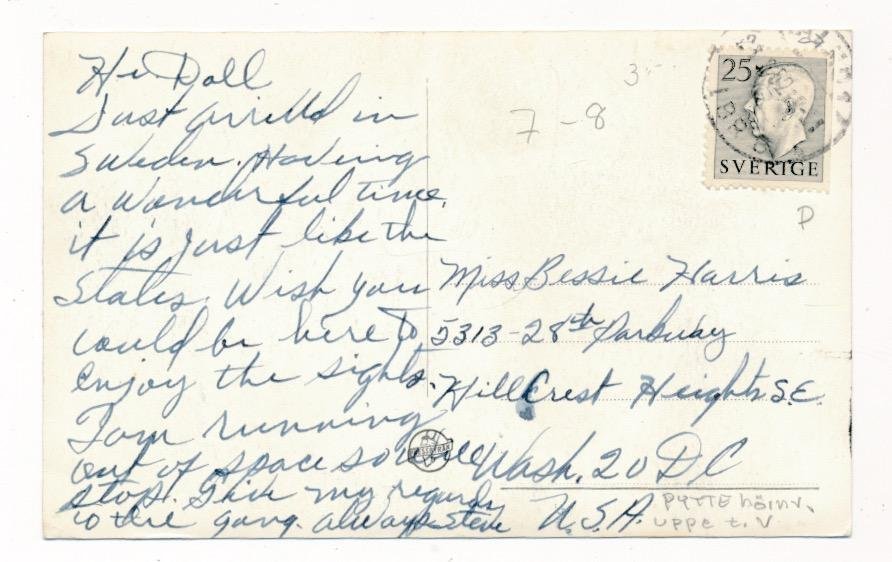 Hi Doll
Just arrived in
Sweden. Having
a wonderful time.
it is just like the
States. Wish you
could be here to
enjoy the sights.
I am running
out of space so will
stop. Give my regards
to the gang. always Steve
7-8
3
25
SVERIGE
D
Miss Bessie Harris
5313-28th Parkway
HillCrest Heights S.E.
Wash. 20 DC
U.S.A.
PYTTE hörnv.
uppe t.V